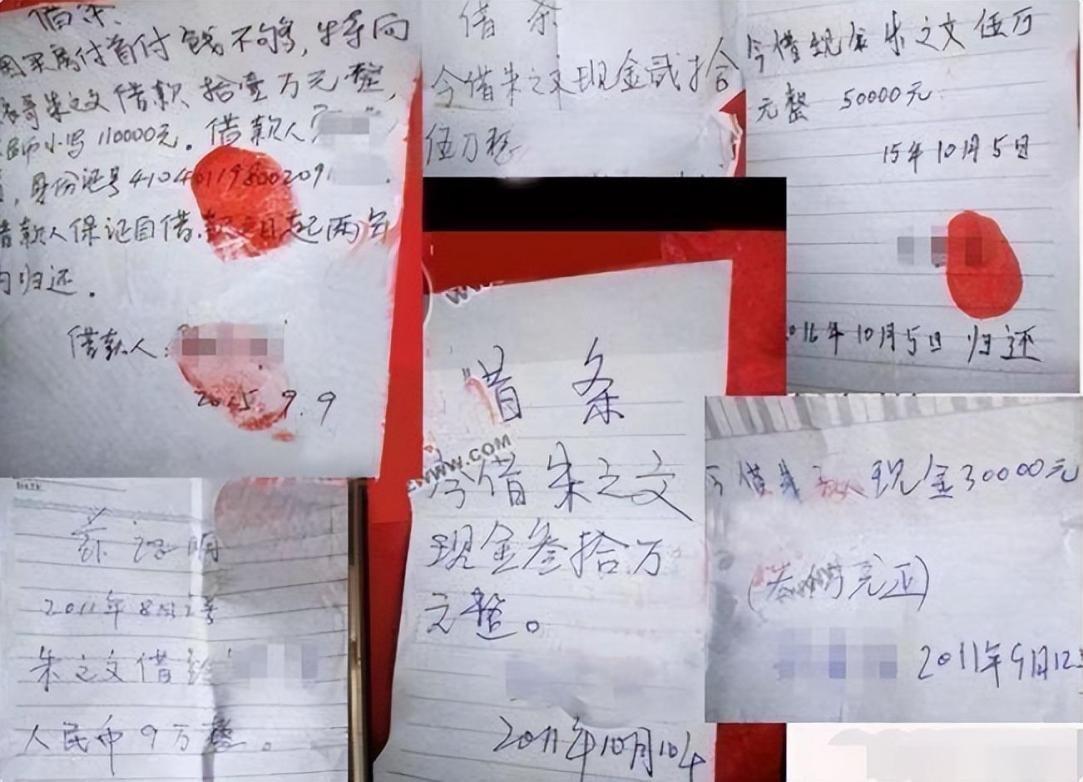 借条
因买房付首付钱不够，特向
表哥朱之文借款 拾壹万元整，
小写110000元。借款人
身份证号41040119800209
借款人保证自借款之日起两年
内归还。
借款人：
2015 9. 9
借 条
今借朱之文现金贰拾
伍万整
今借现金朱之文伍万
元整 50000元
15年10月5日
2016年10月5日 归还
证明
2011年8月2号
朱之文借给
人民币9万整。
WWW.COM
借条
今借朱之文
现金叁拾万
元整。
2011年10月10号
今借 现金30000元
2011年9月12